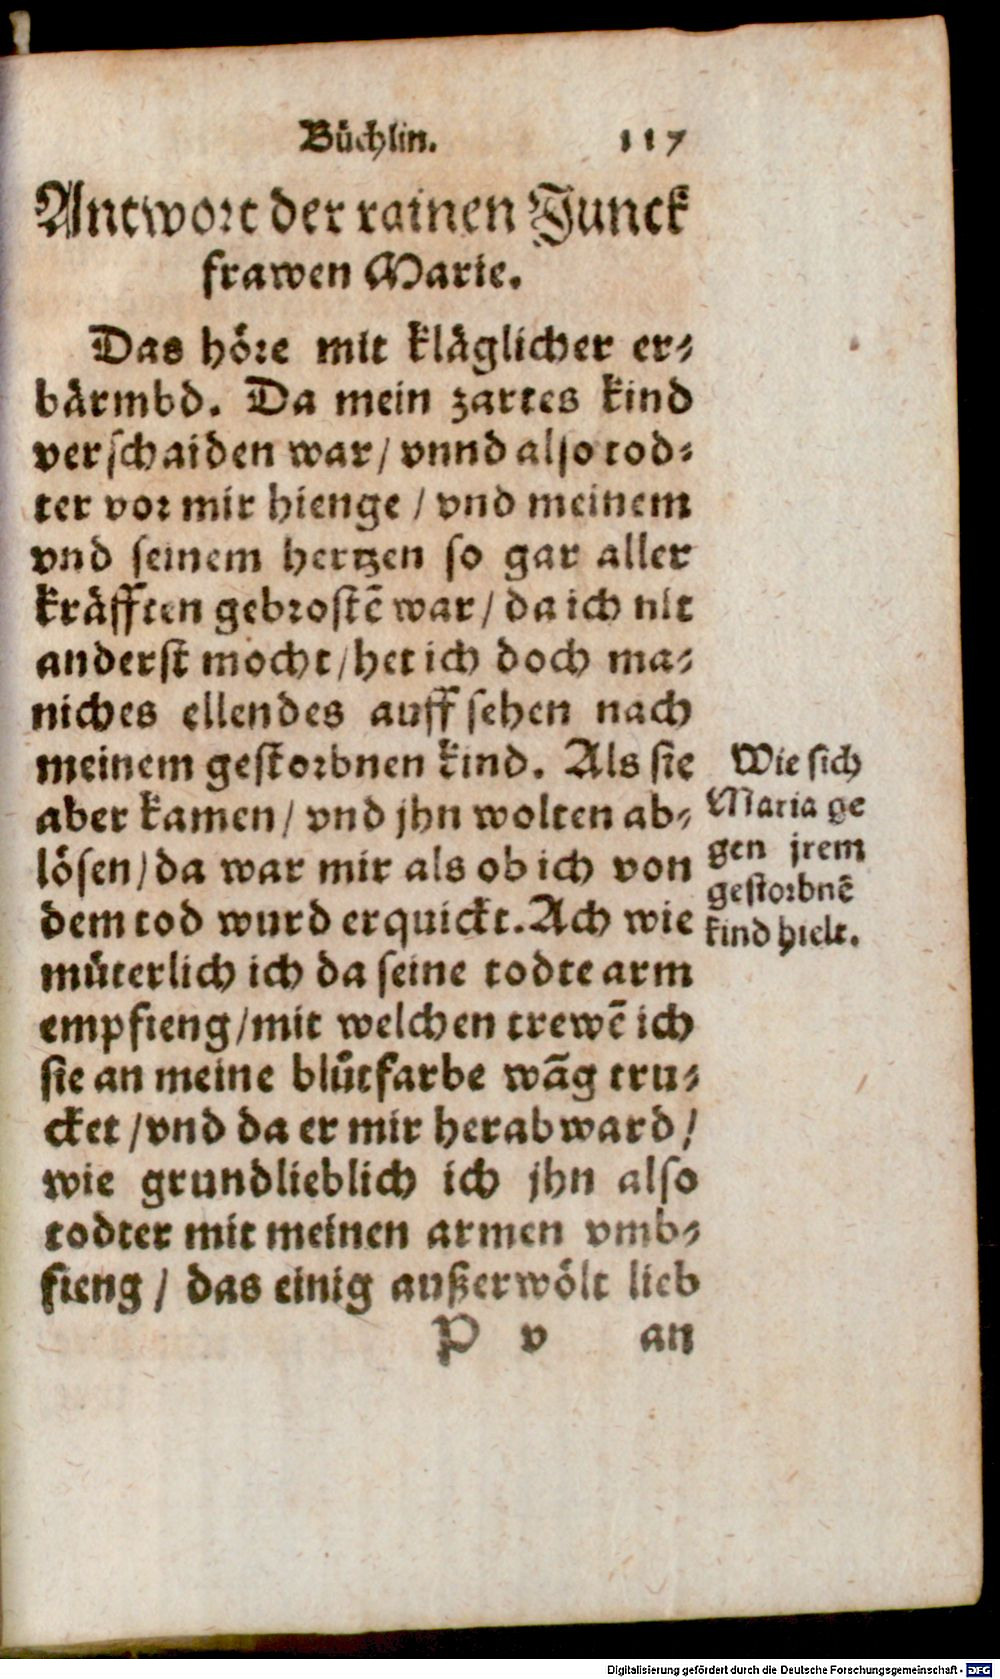 Büchlin. 117
Antwort der rainen Junck
frawen Marie.
Das höre mit kläglicher er-
bärmbd. Da mein zartes kind
verschaiden war/ vnnd also tod-
ter vor mir hienge / vnd meinem
vnd seinem hertzen so gar aller
kräfften gebrostẽ war/ da ich nit
anderst mocht/ het ich doch ma-
niches ellendes auff sehen nach
meinem gestorbnen kind. Als sie
aber kamen/ vnd jhn wolten ab-
lösen/ da war mir als ob ich von
dem tod wurd erquickt. Ach wie
müterlich ich da seine todte arm
empfieng/ mit welchen trewẽ ich
sie an meine blůtfarbe wãg tru-
cket / vnd da er mir herab ward/
wie grundlieblich ich jhn also
todter mit meinen armen vmb-
fieng / das einig außerwölt lieb
P v an
Wie sich
Maria ge
gen jrem
gestorbnẽ
kind hielt.
Digitalisierung gefördert durch die Deutsche Forschungsgemeinschaft - DFG